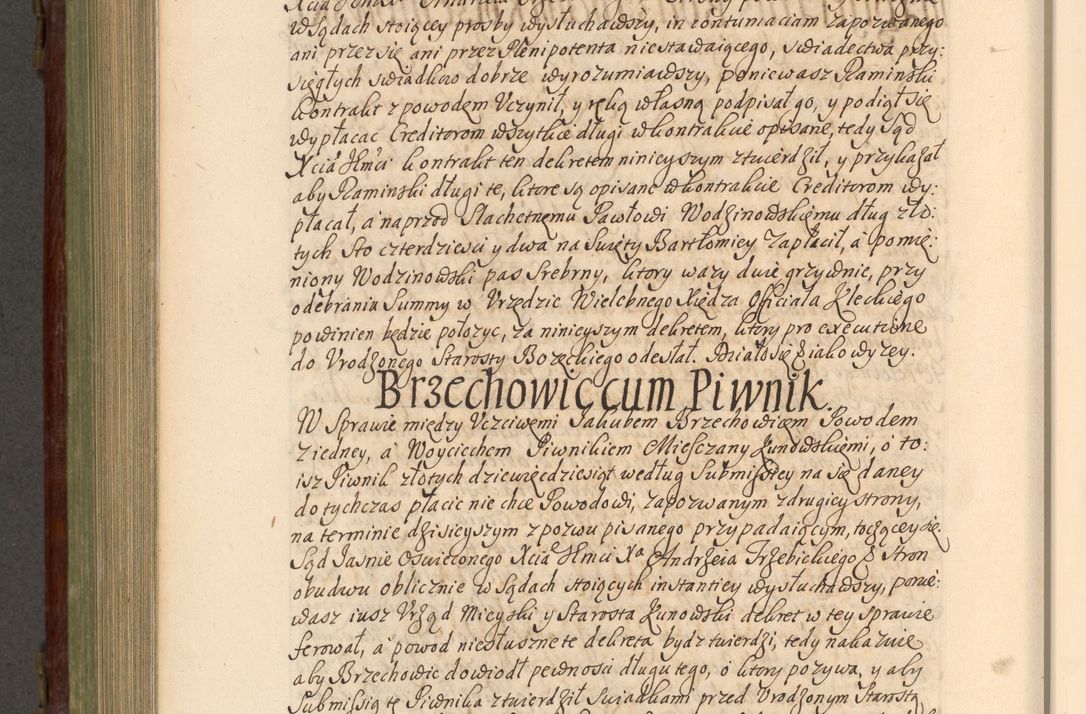 w Sądach stoiącey prosby wysłuchawszy, in contumaciam zapozwanego
ani przez się ani przez Plenipotenta niestawaiącego, swiadectwa przy:
sięgłych swiadkow dobrze wyrozumiawszy, poniewasz Kaminski
kontrakt z powodem Uczynił, y ręką własną podpisał go, y podiął się
wypłacac Creditorom wszytkie długi w kontrakcie opisane, tedy Sąd
Xcia Jhmci kontrakt ten dekretem ninieyszym ztwierdził, y przykazał
aby Kaminski długi te, ktore są opisane w kontrakcie Creditorom wy:
płacał, a naprzod Slachetnemu Pawłowi Wodzinowskiemu dług zło:
tych Sto czterdziesci y dwa na Swięty Bartłomiey Zapłacił, á pomie:
niony Wodzinowski pas Srebrny, ktory wazy dwie grzywnie, przy
odebraniu Summy w Urzędzie Wielebnego Xiędza Officiała Kleckiego
powinien będzie połozyc, za ninieyszym dekretem, ktory pro executione
do Urodzonego Starosty Bozeckiego odesłał. Działo się iako wyzey.
Brzechowic cum Piwnik.
W Sprawie między Uczciwemi Jakubem Brzechowicem Powodem
z iedney, á Woyciechem Piwnikiem Miesczany Kunowskiemi, o to:
isz Piwnik złotych dziewięcdziesiąt według Submissiey na się daney
do tychczas płacic nie chce Powodowi, Zapozwanym z drugiey strony,
na terminie dzisieyszym z pozwu pisanego przypadaiącym, toczącey się.
Sąd Jasnie Oswieconego Xcia Jhmci Xa Andrzeia Trzebickiego Stron
obudwu oblicznie w Sądach stoiących instantiey wysłuchawszy, ponie:
wasz iusz Urząd Mieyski y Starosta Kunowski dekret w tey sprawie
ferował, á powod niesłuszne te dekreta bydz twierdzi, tedy nakazuie
aby Brzechowic dowiodł pewnosci długu tego, o ktory pozywa, y aby
Submissią tę Piwnika ztwierdził Swiadkami przed Urodzonym Starostą